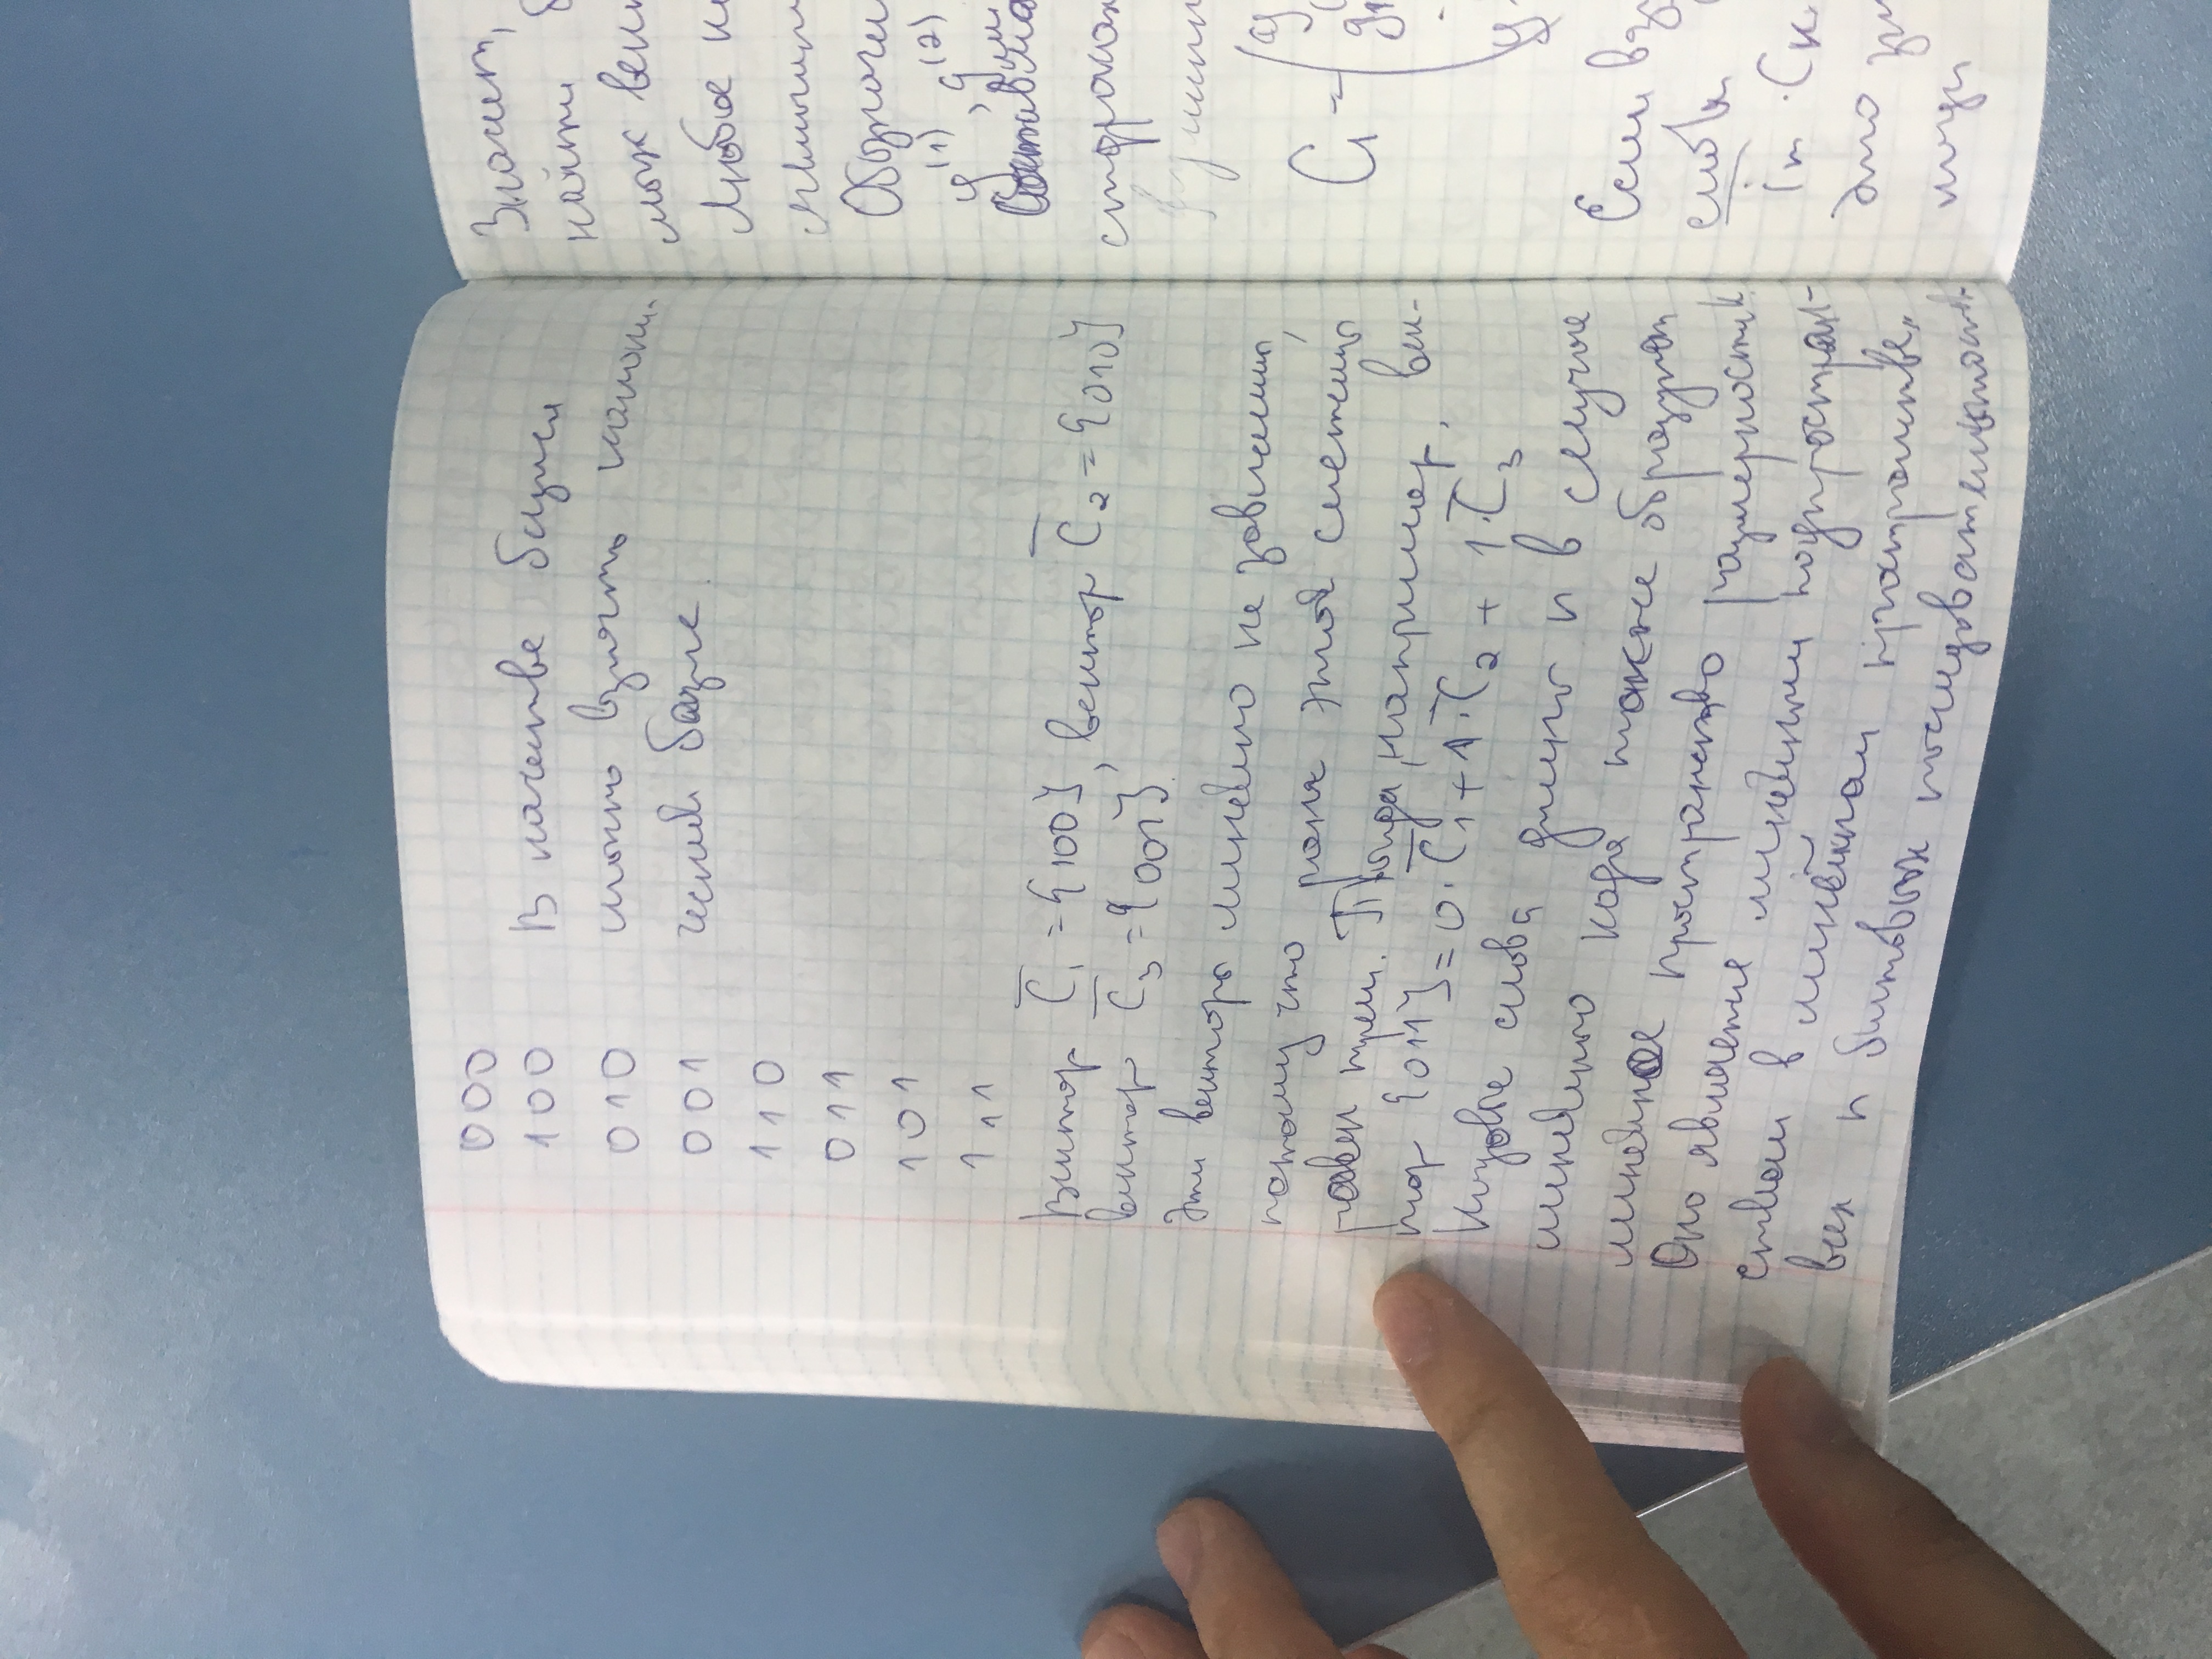 000
100 В качестве базиса
010 можно взять канони-
001 ческий базис.
110
011
101
111
Вектор C̅₁ = {100}, вектор C̅₂ = {010}
вектор C̅₃ = {001}.
Эти векторы линейно не зависимы,
потому что ранг этой системы
равен трем. Тогда, например, век-
тор {011} = 0·C̅₁ + 1·C̅₂ + 1·C̅₃
Кодовые слова длины n в случае
линейного кода также образуют
линейное пространство размерности k.
Оно является линейным подпростран-
ством в линейном пространстве
всех n битовых последовательностей
Значит,
найти б
мых век
Любое к
Обозначи
g⁽¹⁾, g⁽²⁾
Составим
строкам
G = (g
g₁
g
Если вз
слов
Это зн